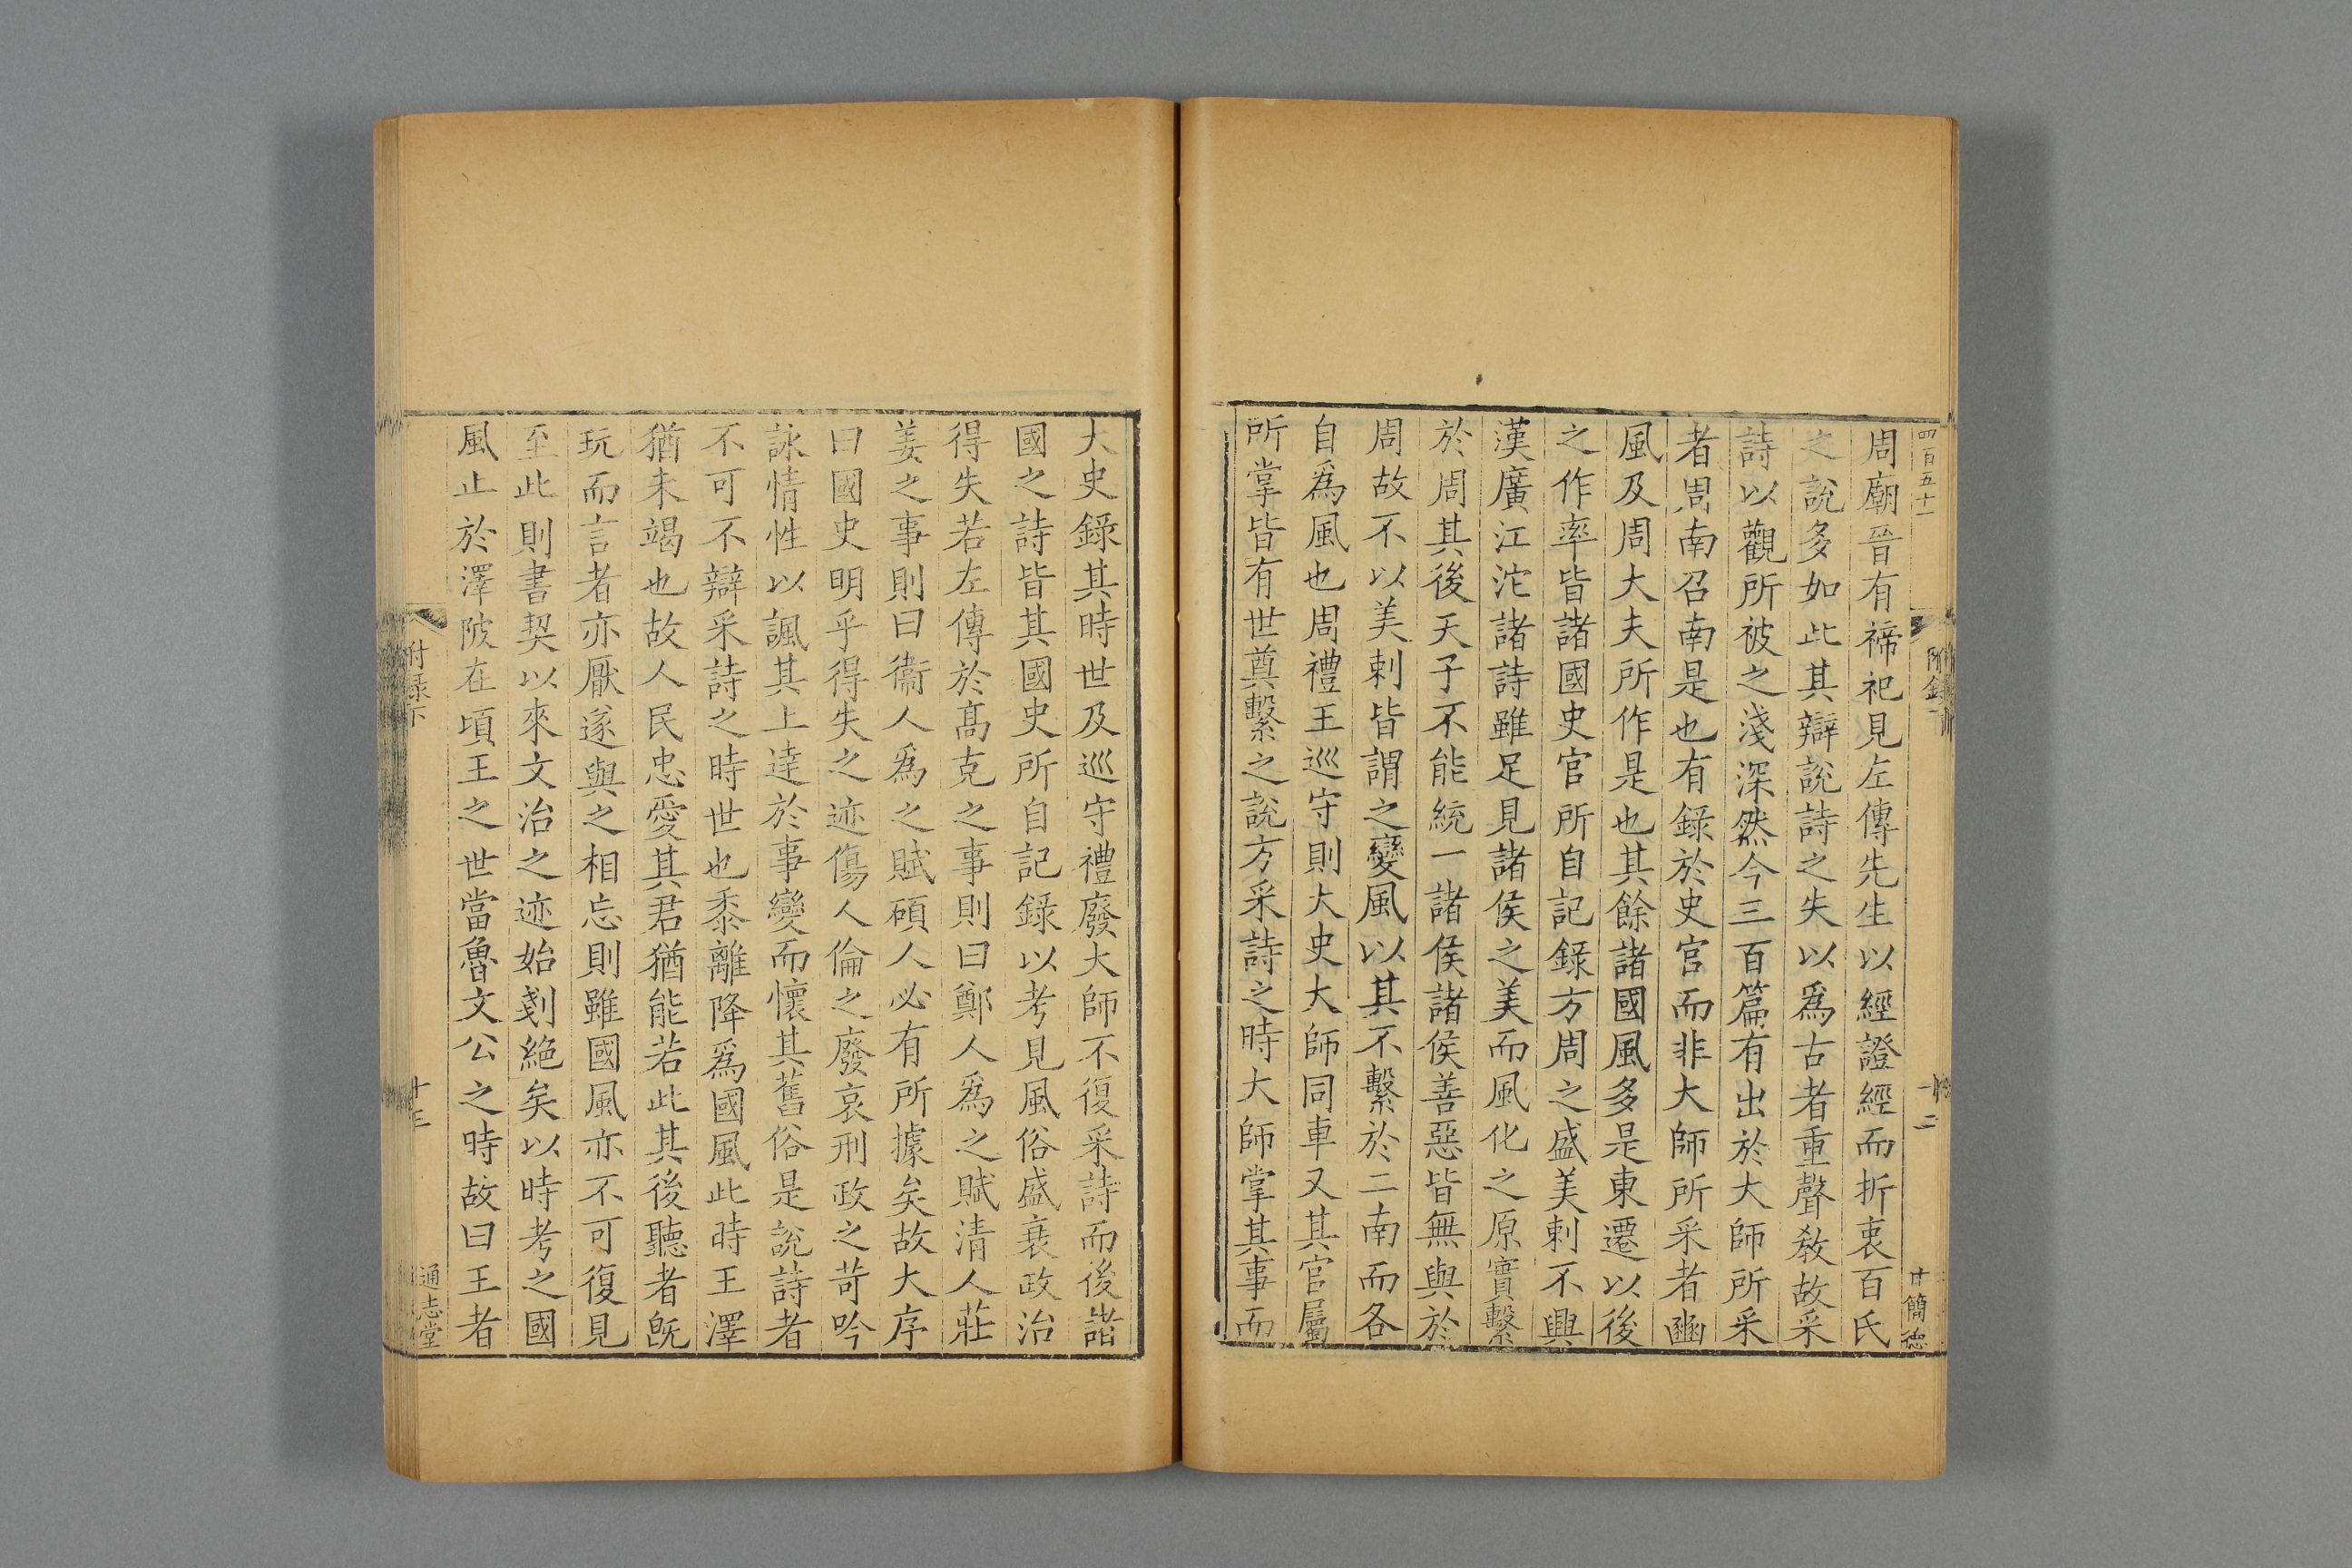 四百五十一
附錄下
十二
十簡德
周廟晉有禘祀見左傳先生以經證經而折衷百氏
之說多如此其辯說詩之失以爲古者重聲教故采
詩以觀所被之淺深然今三百篇有出於大師所采
者周南召南是也有錄於史官而非大師所采者豳
風及周大夫所作是也其餘諸國風多是東遷以後
之作率皆諸國史官所自記錄方周之盛美刺不興
漢廣江沱諸詩雖足見諸侯之美而風化之原實繫
於周其後天子不能統一諸侯諸侯善惡皆無與於
周故不以美刺皆謂之變風以其不繫於二南而各
自爲風也周禮王巡守則大史大師同車又其官屬
所掌皆有世奠繫之說方采詩之時大師掌其事而
大史錄其時世及巡守禮廢大師不復采詩而後諸
國之詩皆其國史所自記錄以考見風俗盛衰政治
得失若左傳於高克之事則曰鄭人爲之賦清人莊
姜之事則曰衞人爲之賦碩人必有所據矣故大序
曰國史明乎得失之迹傷人倫之廢哀刑政之苛吟
詠情性以諷其上達於事變而懷其舊俗是說詩者
不可不辯采詩之時世也黍離降爲國風此時王澤
猶未竭也故人民忠愛其君猶能若此其後聽者旣
玩而言者亦厭遂與之相忘則雖國風亦不可復見
至此則書契以來文治之迹始剗絕矣以時考之國
風止於澤陂在頃王之世當魯文公之時故曰王者
附錄下
十三
通志堂